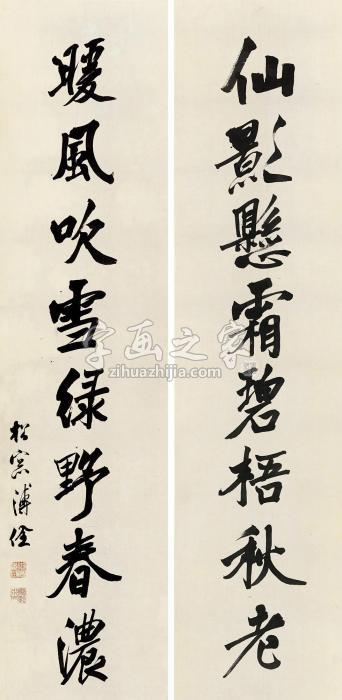 仙影懸霜碧梧秋老
暖風吹雪绿野春濃
松窗溥佺
字画之家
zihuazhijia.com